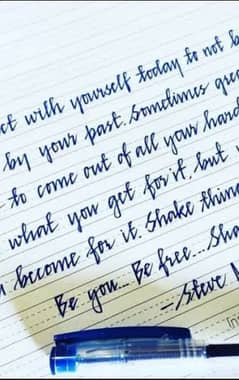 ct with yourself today to not b
by your past. Sometimes grea
to come out of all your hard
what you get for it, but
become for it. Shake thin
Be you... Be free... Sha
--Steve M